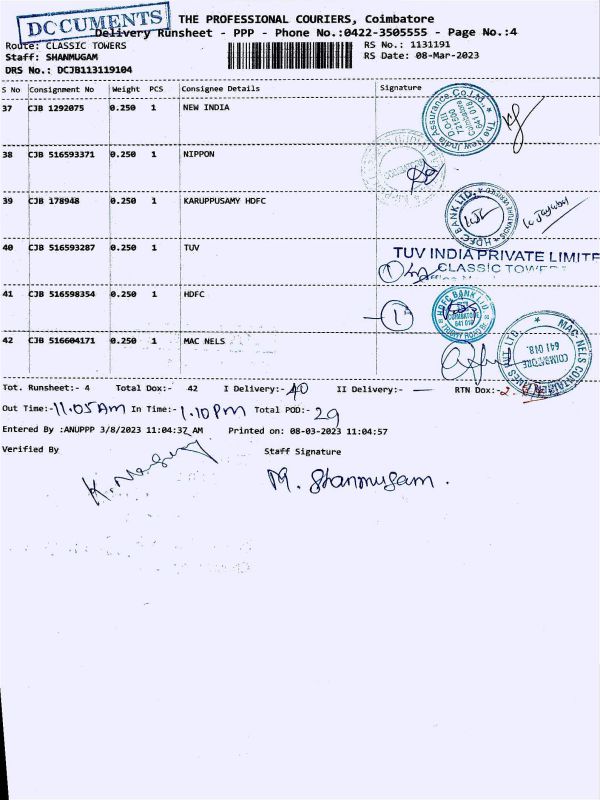 DOCUMENTS
THE PROFESSIONAL COURIERS, Coimbatore
Delivery Runsheet - PPP - Phone No.:0422-3505555 - Page No.:4
Route: CLASSIC TOWERS
RS No.: 1131191
Staff: SHANMUGAM
RS Date: 08-Mar-2023
DRS No.: DCJB113119104
S No Consignment No Weight PCS Consignee Details Signature
37 CJB 1292075 0.250 1 NEW INDIA
The New India Assurance Co. Ltd.
Coimbatore
641 018
38 CJB 516593371 0.250 1 NIPPON
39 CJB 178948 0.250 1 KARUPPUSAMY HDFC
HDFC BANK LTD.
40 CJB 516593287 0.250 1 TUV
TUV INDIA PRIVATE LIMITE
CLASSIC TOWER
41 CJB 516598354 0.250 1 HDFC
1
HDFC BANK LTD
COIMBATORE
641 018
42 CJB 516604171 0.250 1 MAC NELS
MAC NELS CONTAINER LINES PVT LTD
COIMBATORE
641 018.
Tot. Runsheet:- 4 Total Dox:- 42 I Delivery:- 40 II Delivery:- — RTN Dox:- 2
Out Time:- 11.05 Am In Time:- 1.10 Pm Total POD:- 29
Entered By :ANUPPP 3/8/2023 11:04:37 AM Printed on: 08-03-2023 11:04:57
Verified By Staff Signature
M. Shanmugam.